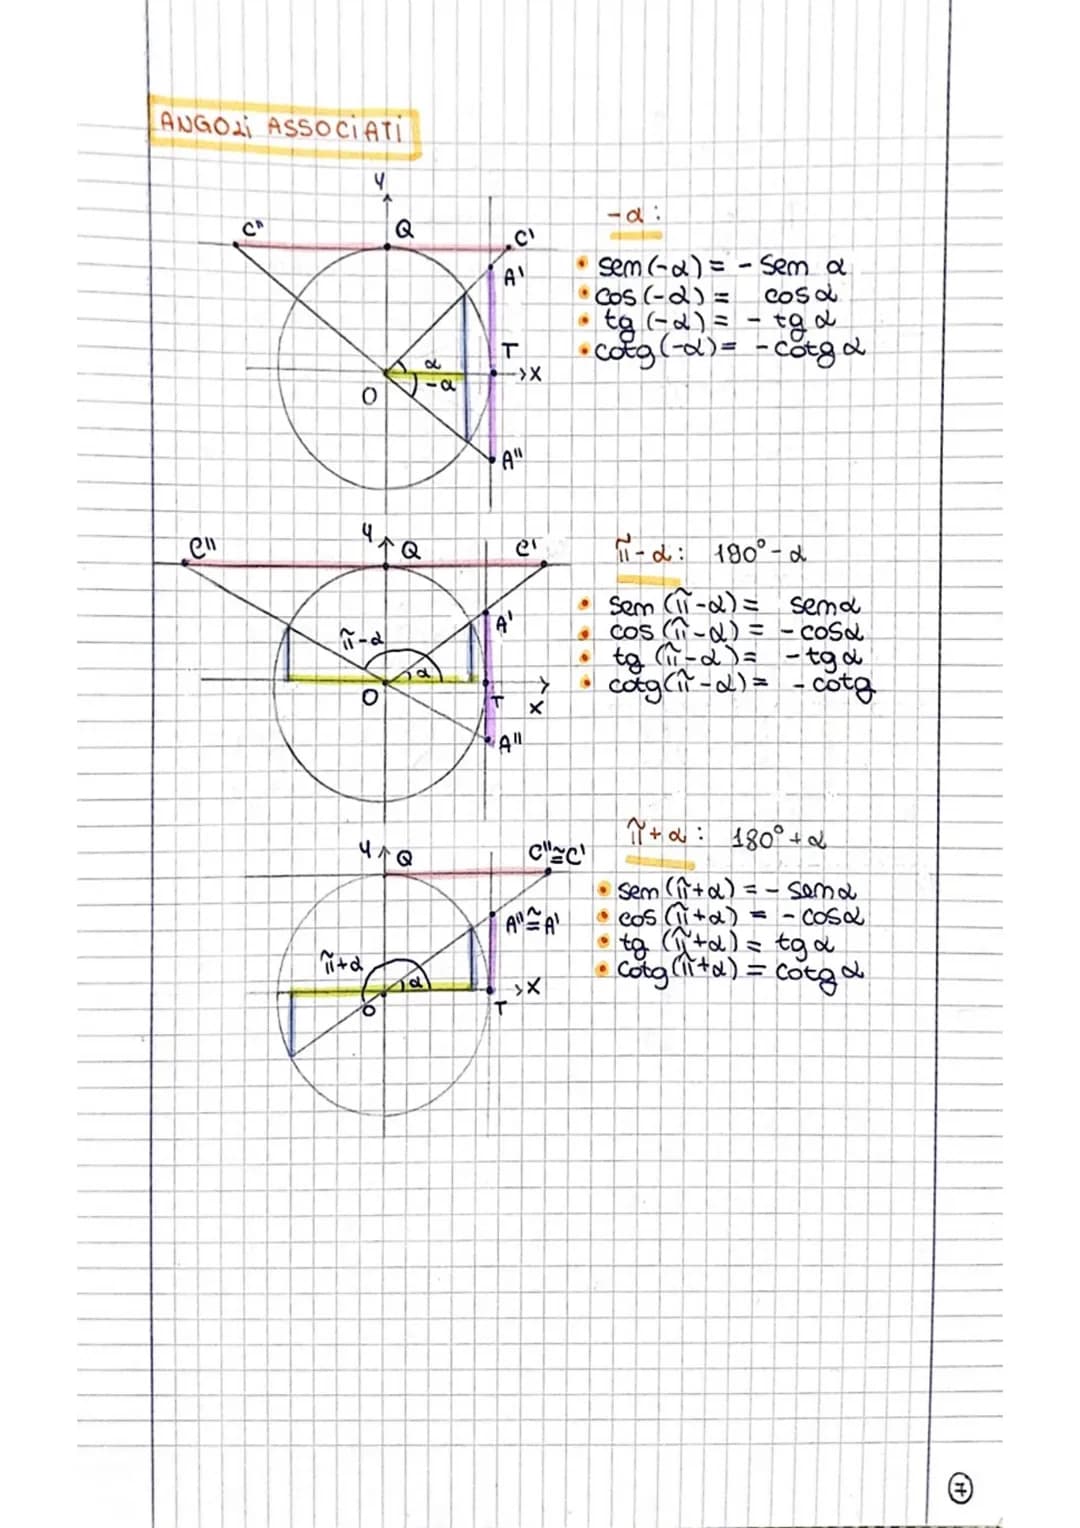 ANGOLi ASSOCiATi
y
C" Q C'
A'
α T
-α x
O
A"
-α:
• sem(-α) = - sem α
• cos(-α) = cos α
• tg (-α) = - tg α
• cotg(-α) = - cotg α
y
C" Q C'
A'
π-α
α
O T x
A"
π-α: 180° - α
• sem (π-α) = semα
• cos (π-α) = - cosα
• tg (π-α) = - tgα
• cotg(π-α) = - cotg
y Q C"≅C'
A"≅A'
π+α
α x
O T
π+α: 180° + α
• sem (π+α) = - semα
• cos (π+α) = - cosα
• tg (π+α) = tgα
• cotg(π+α) = cotgα
7